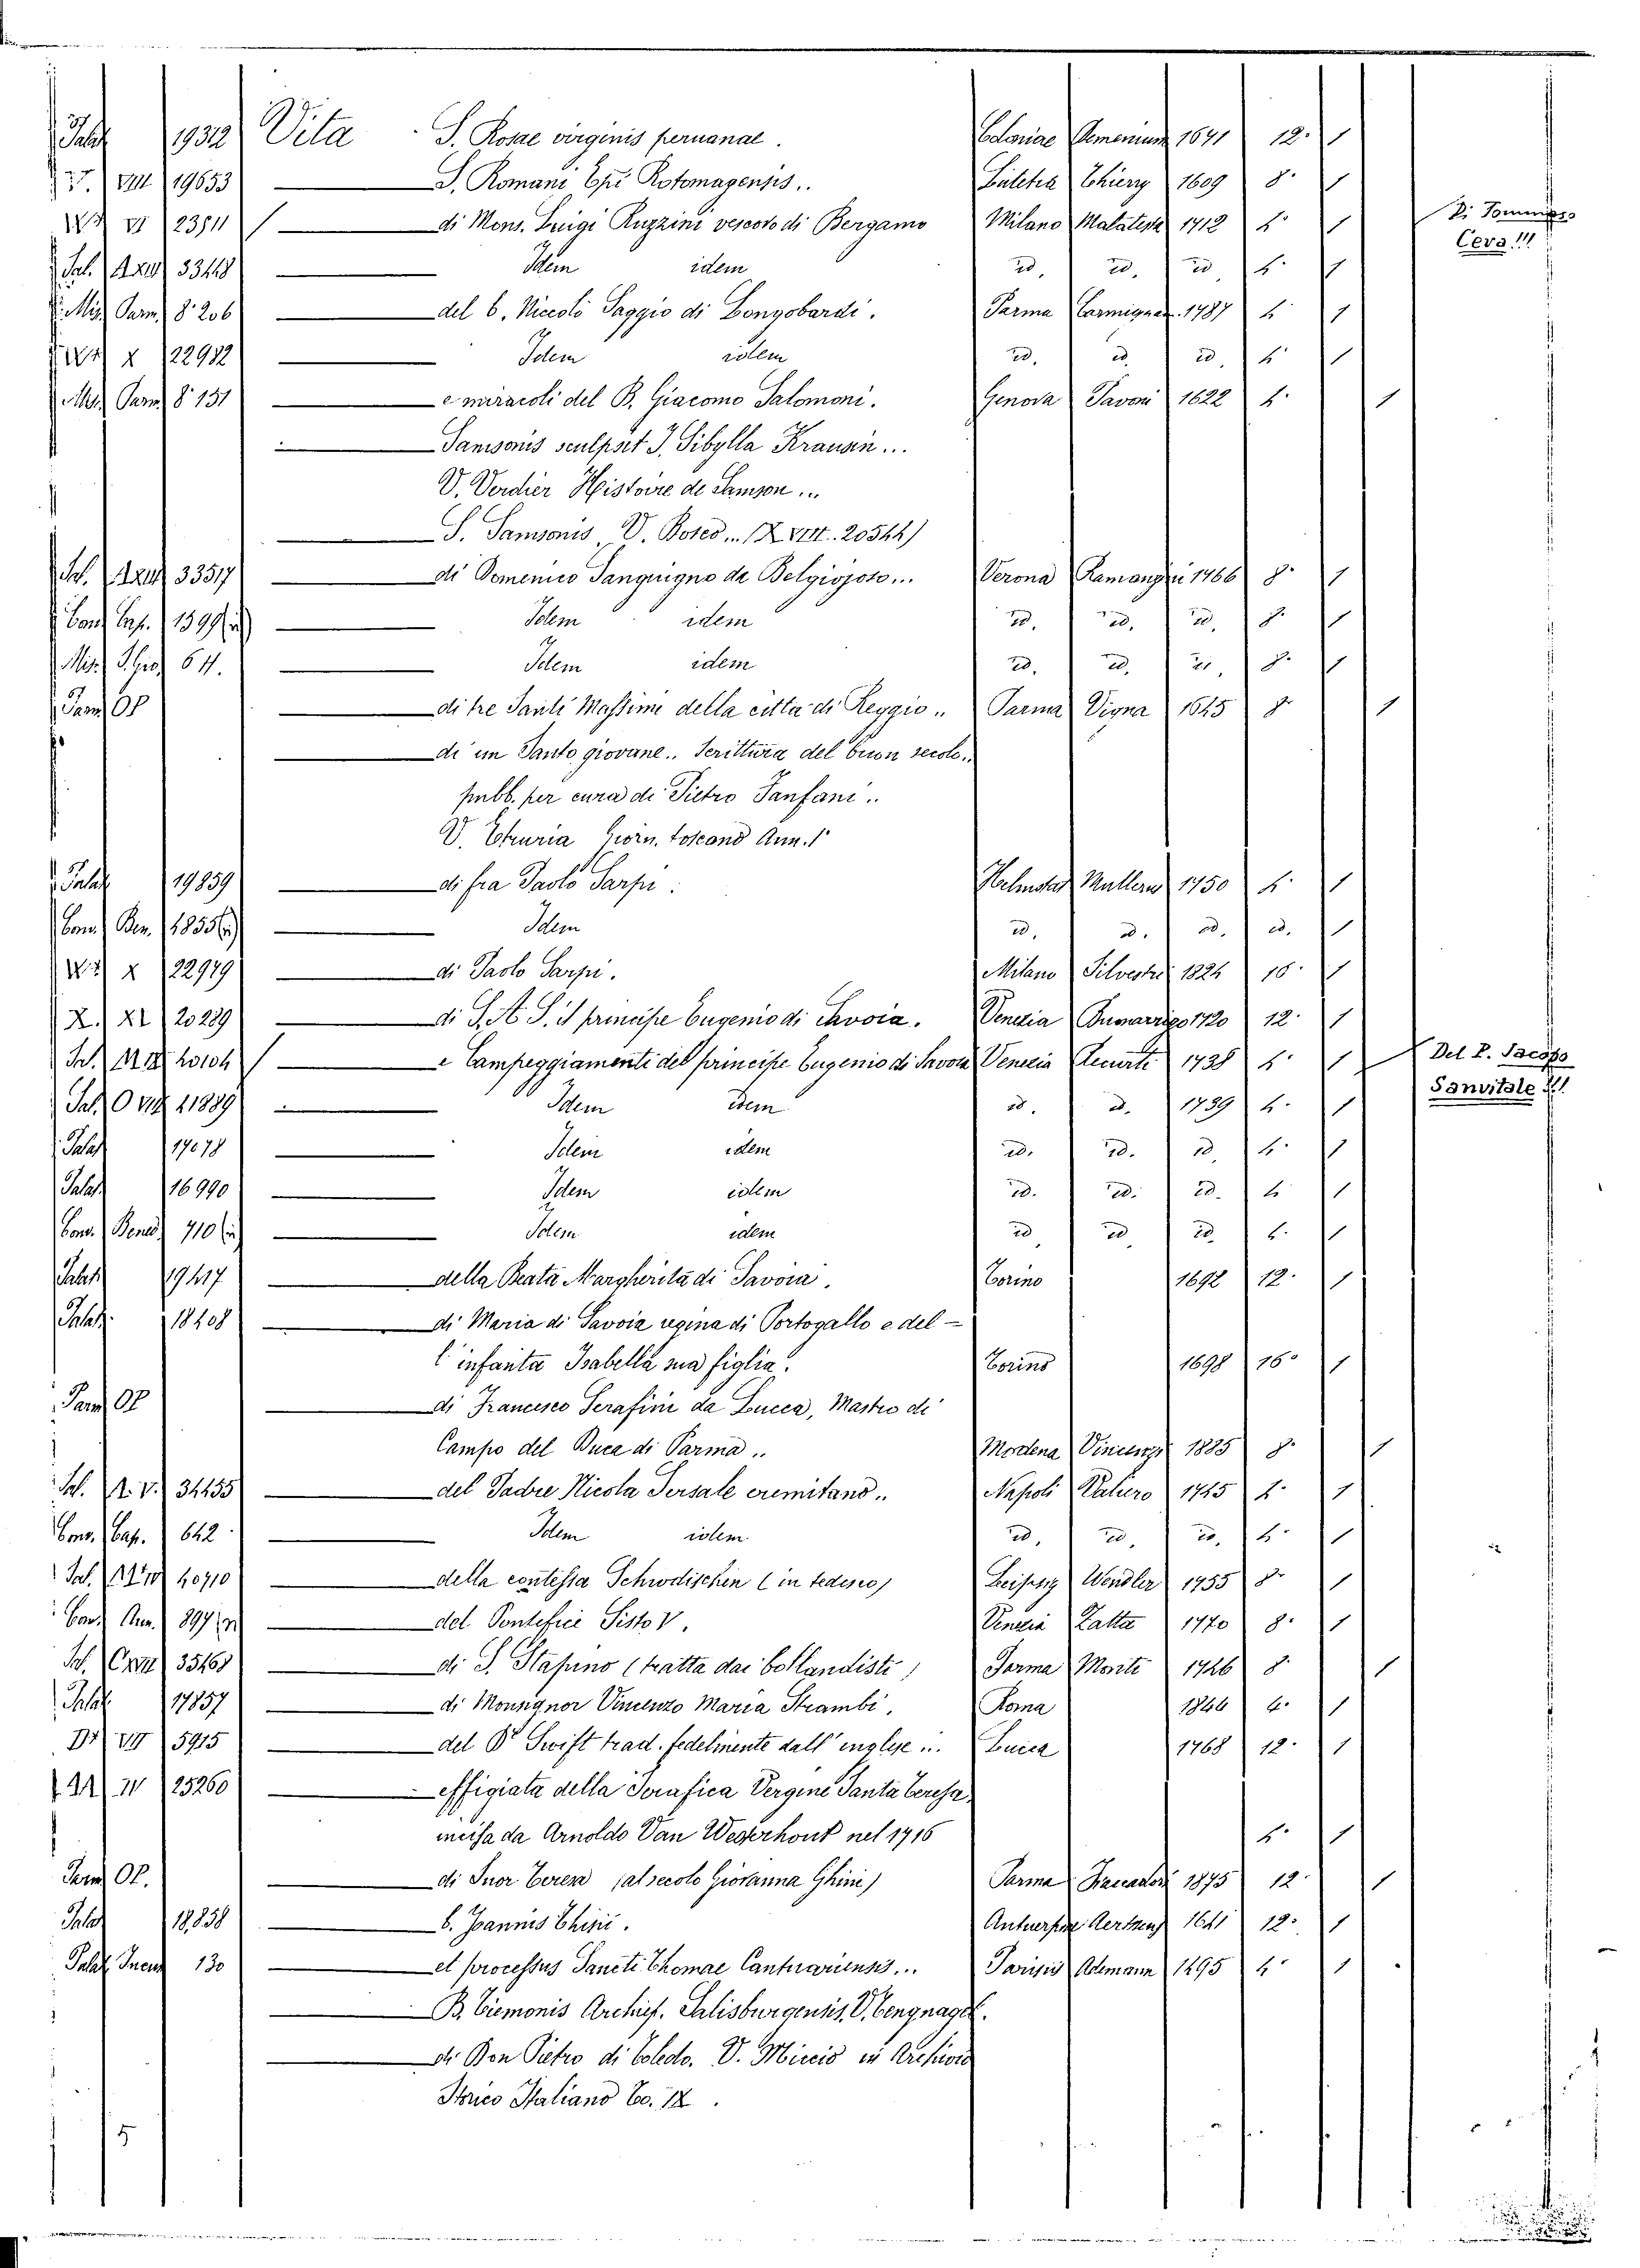 Palat 19312 Vita S. Rosae virginis peruanae. Coloniae 1671 12° 1
VIII 19653 S. Romani Epi Rotomagensis.. Lutetia Thierry 1609 8° 1
VI 23511 di Mons. Luigi Ruzzini vescovo di Bergamo Milano Malatesta 1712 4° 1 Di Tommaso
Ceva!!!
Sal. 33448 Idem idem id. id. id. 4° 1
Mis. Parm. 8° 206 del b. Niccolò Saggio di Longobardi. Parma Carmignan. 1787 4° 1
X 22982 Idem idem id. id. id. 4° 1
Mis. Parm. 8° 151 e miracoli del B. Giacomo Salomoni. Genova Pavoni 1622 4° 1
Samsonis sculpsit J. Sibylla Krausin...
V. Verdier Histoire de Samson...
S. Samsonis, V. Bosco... (X VIII. 20544)
Sal. 33517 di Domenico Sanguigno da Belgiojoso... Verona Ramanzini 1766 8° 1
Conv. Cap. 1399 Idem idem id. id. id. 8° 1
Mis. 64. Idem idem id. id. id. 8° 1
Parm. OP di tre Santi Massime della città di Reggio.. Parma Vigna 1645 8° 1
di un Santo giovane.. Scrittura del buon secolo..
pubb. per cura di Pietro Fanfani..
V. Etruria Giorn. toscano Ann. 1°
Palat 19859 di fra Paolo Sarpi. Helmstat Mullern 1750 4° 1
Conv. Ben. 1855 Idem id. id. id. id. 1
X 22979 di Paolo Sarpi. Milano Silvestri 1824 16° 1
X. XI 20289 di S. A. S. il principe Eugenio di Savoia. Venezia Bumarrigo 1720 12° 1
Sal. e Campeggiamenti del principe Eugenio di Savoia Venezia Recurti 1738 4° 1 Del P. Jacopo
Sanvitale!!!
Sal. O VIII 41889 Idem idem id. id. 1739 4° 1
Palat 17078 Idem idem id. id. id. 4° 1
Palat 16990 Idem idem id. id. id. 4° 1
Conv. Bened. 710 Idem idem id id id. 4° 1
Palat 19417 della Beata Margherita di Savoia. Torino 1692 12° 1
Palat. 18408 di Maria di Savoia regina di Portogallo e del-
l'infanta Isabella sua figlia. Torino 1698 16° 1
Parm. OP di Francesco Serafini da Lucca, Mastro di
Campo del Duca di Parma.. Modena Vincenzi 1885 8° 1
Sal. V. 34455 del Padre Nicola Persale eremitano.. Napoli Paluro 1745 4° 1
Conv. Cap. 642 Idem idem id. id. id. 4° 1
Sal. 40710 della contessa Schwdischen (in tedesco) Leipzig Wendler 1755 8° 1
Conv. Ann. 897 del Pontefice Sisto V. Venezia Zatta 1770 8° 1
Sal. 35468 di S. Stapino (tratta dai bollandisti) Parma Monti 1746 8° 1
Palat 17857 di Monsignor Vincenzo Maria Strambi. Roma 1846 4° 1
VII 5915 del Dr Swift trad. fedelmente dall'inglese.. Lucca 1768 12° 1
IV 25260 effigiata della Serafica Vergine Santa Teresa
incisa da Arnoldo Van Westerhout nel 1716 4° 1
Parm. OP. di Suor Teresa (al secolo Giovanna Ghini) Parma Fiaccadori 1875 12° 1
Palat 18838 b. Joannis Chisii. Antuerpiae Aertsens 1641 12° 1
Palat. Incun. 130 et processus Sancti Thomae Cantuariensis... Parisiis 1495 4° 1
B. Tiemonis Archiep. Salisburgensis. V. Tengnagel.
di Don Pietro di Toledo. V. Miccio in Archivio
Storico Italiano To. IX.
5